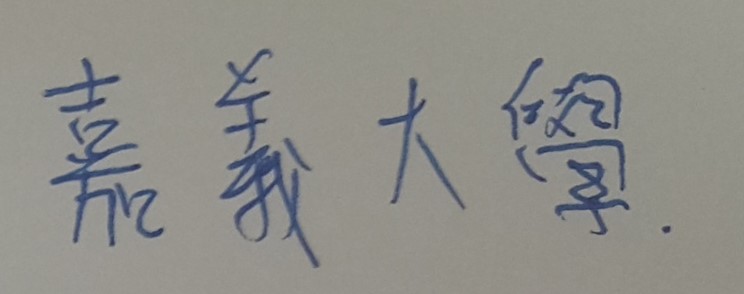 嘉義大學.